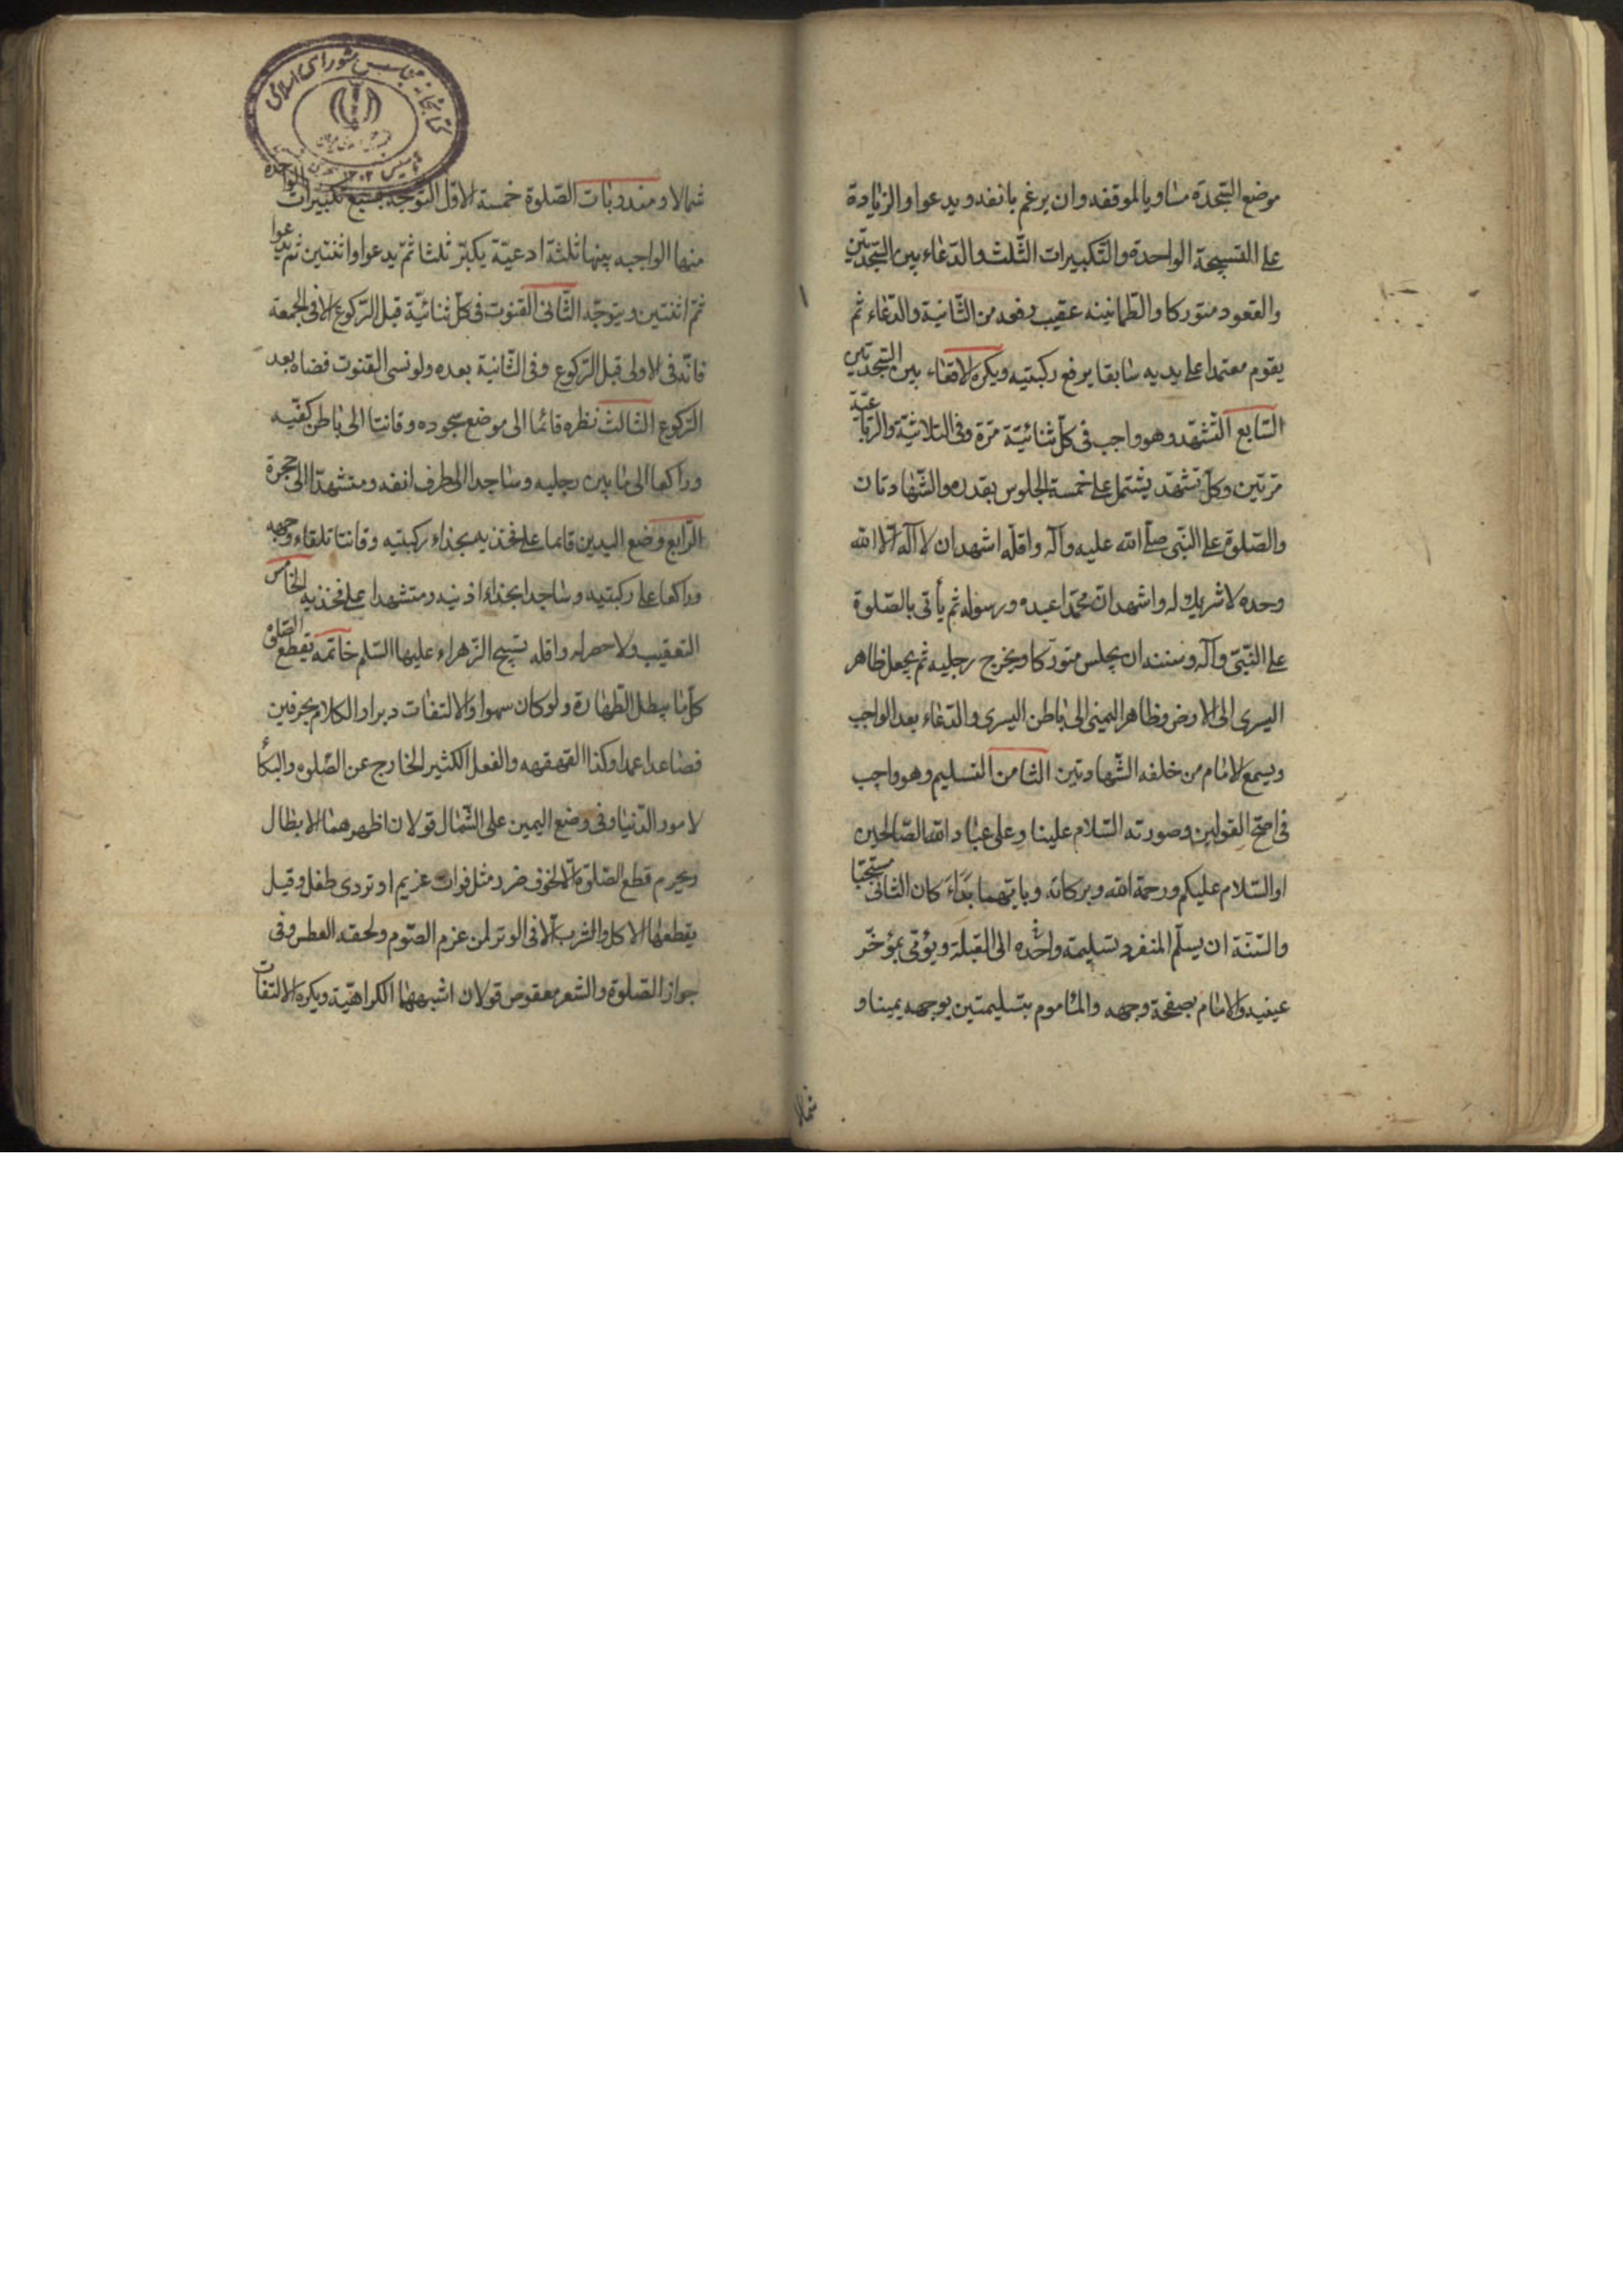 موضع السّجدة مساويا لموقفه وان يرغم بانفه ويدعوا والزيادة
على التسبيحة الواحدة والتّكبيرات الثّلث والدّعاء بين السّجدتين
والقعود متوركا والطمانينه عقيب رفعه من الثّانية والدّعاء ثم
يقوم معتمدا على يديه سابقا يرفع ركبتيه ويكره الاقعاء بين السّجدتين
السّابع التّشهّد وهو واجب فى كلّ ثنائيّة مرّة وفى الثلاثيّة والرّباعيّة
مرّتين وكلّ تشهّد يشتمل على خمسة الجلوس بقدره والشّهادتان
والصّلوة على النّبى صلّى الله عليه وآله واقلّه اشهد ان لا اله الّا الله
وحده لا شريك له واشهد انّ محمّدا عبده ورسوله ثم يأتى بالصّلوة
على النّبىّ وآله وسننه ان يجلس متورّكا ويخرج رجليه ثم يجعل ظاهر
اليسرى الى الارض وظاهر اليمنى الى باطن اليسرى والدّعاء بعد الواجب
ويسمع الامام من خلفه الشّهادتين الثامن التسليم وهو واجب
فى اصحّ القولين وصورته السّلام علينا وعلى عباد الله الصّالحين
او السّلام عليكم ورحمة الله وبركاته وبايّهما بَدَاءَ كان الثانى مستحبّا
والسّنّة ان يسلّم المنفرد تسليمة واحده الى القبلة ويؤمى بمؤخّر
عينيه والامام بصفحة وجهه والمأموم بتسليمتين بوجهه يمينا و
شمالا
شمالا ومندوبات الصّلوة خمسة الاوّل التّوجّه بسبع تكبيرات الواحدة
منها الواجبه بينها ثلثة ادعيّة يكبّر ثلثا ثمّ يدعوا واثنتين ثم يدعوا
ثمّ اثنتين ويتوجّه الثّانى القنوت فى كلّ ثنائيّة قبل الرّكوع الا فى الجمعة
فانّه فى الاولى قبل الرّكوع وفى الثّانية بعده ولو نسى القنوت قضاه بعد
الرّكوع الثالث نظره قائما الى موضع سجوده وقانتا الى باطن كفّيه
وراكعا الى ما بين رجليه وساجدا الى طرف انفه ومتشهّدا الى حجره
الرّابع وضع اليدين قائما على فخذيه بحذاء ركبتيه وقانتا تلقاء وجهه
وراكعا على ركبتيه وساجدا بحذاء اذنيه ومتشهدا على فخذيه الخامس
التعقيب ولا حصر له واقله تسبيح الزّهراء عليها السّلم خاتمه يقطع الصّلوة
كلّ ما يبطل الطّهارة ولو كان سهوا والالتفات دبرا والكلام بحرفين
فصاعدا عمدا وكذا القهقهه والفعل الكثير الخارج عن الصّلوه والبكأ
لامور الدّنيا وفى وضع اليمين على الشّمال قولان اظهرهما الابطال
ويحرم قطع الصّلوة الّا لخوف ضرر مثل فوات غريم او تردى طفل وقيل
يقطعها الاكل والشرب الّا فى الوتر لمن عزم الصّوم ولحقه العطش وفى
جواز الصّلوة والشعر معقوص قولان اشبههما الكراهيّة ويكره الالتفات
كتابخانه مجلس شوراى اسلامى